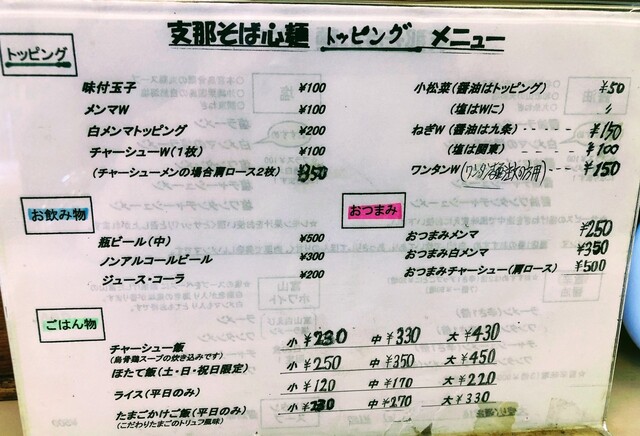 支那そば心麺 トッピング メニュー
トッピング
味付玉子 ¥100
メンマW ¥100
白メンマトッピング ¥200
チャーシューW(1枚) ¥100
(チャーシューメンの場合肩ロース2枚) ¥350
小松菜(醤油はトッピング) ¥50
(塩はWに) 〃
ねぎW(醤油は九条)---- ¥150
(塩は関東) ¥100
ワンタンW ¥150
お飲み物
瓶ビール(中) ¥500
ノンアルコールビール ¥300
ジュース・コーラ ¥200
おつまみ
おつまみメンマ ¥250
おつまみ白メンマ ¥350
おつまみチャーシュー(肩ロース) ¥500
ごはん物
チャーシュー飯 小 ¥230 中 ¥330 大 ¥430
(烏骨鶏スープの炊き込みです)
ほたて飯(土・日・祝日限定) 小 ¥250 中 ¥350 大 ¥450
ライス(平日のみ) 小 ¥120 中 ¥170 大 ¥220
たまごかけご飯(平日のみ) 小 中 ¥270 大 ¥330
(こだわりたまごのトリュフ風味)